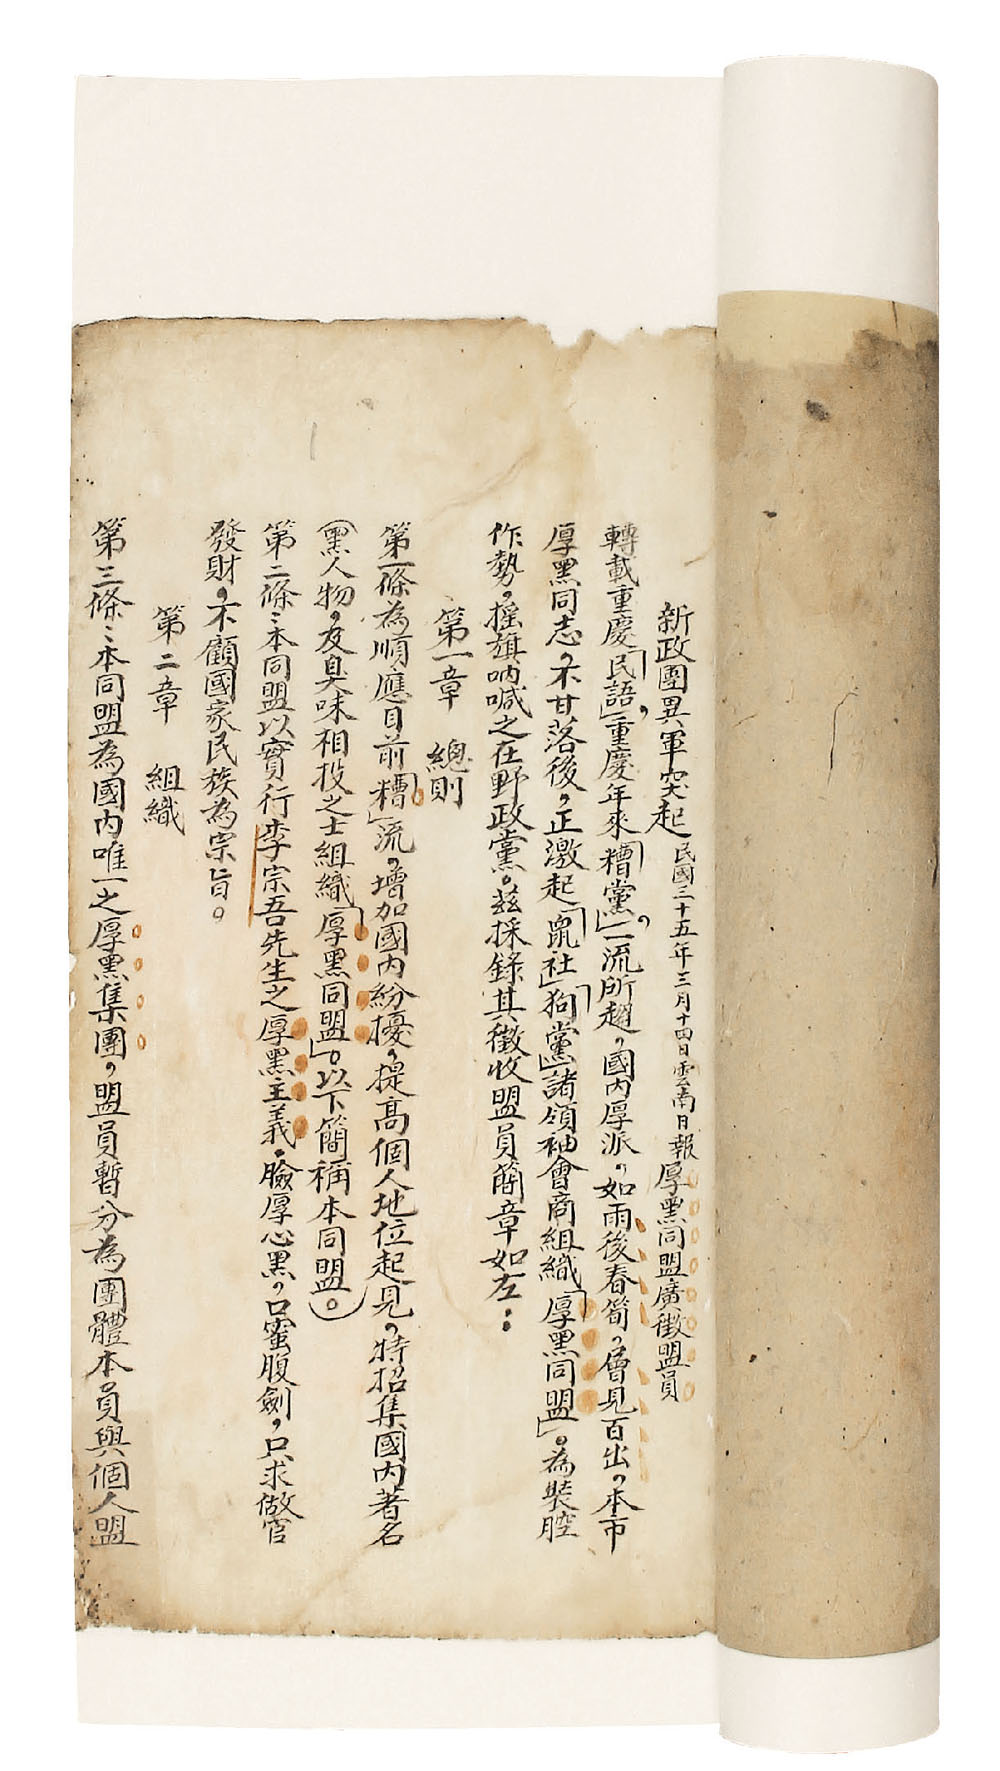 新政團異軍突起 民國三十五年三月十四日雲南日報 厚黑同盟廣徵盟員
轉載重慶「民語」,重慶年來「糟黨」,一流所趨,國內厚派,如雨後春筍,層見百出,本市
厚黑同志,不甘落後,正激起「鼠社」「狗黨」諸領袖會商組織「厚黑同盟」。為裝腔
作勢,搖旗吶喊之在野政黨。茲採錄其徵收盟員簡章如左:
第一章 總則
第一條為順應目前「糟」流,增加國內紛擾,提高個人地位起見,特招集國內著名
(黑人物,及臭味相投之士組織「厚黑同盟」。以下簡稱本同盟。)
第二條:本同盟以實行李宗吾先生之厚黑主義,臉厚心黑,口蜜腹劍,只求做官
發財,不顧國家民族為宗旨。
第二章 組織
第三條:本同盟為國內唯一之厚黑集團,盟員暫分為團體本員與個人盟